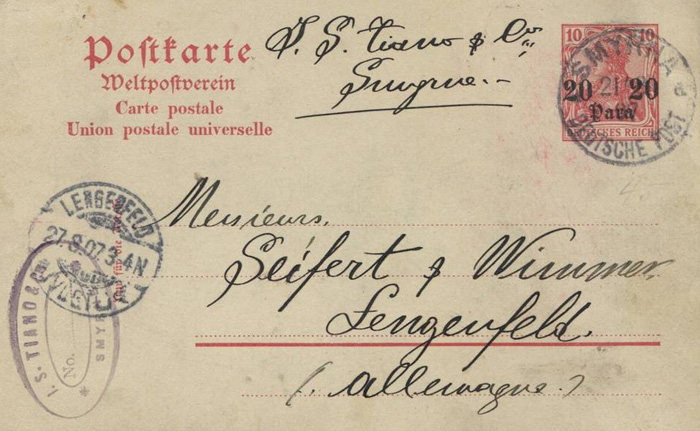 Postkarte
Weltpostverein
Carte postale
Union postale universelle
J. S. Tiano & Co
Smyrne.
10 10
20 20
Para
DEUTSCHES REICH
SMYRNA
21
DEUTSCHE POST
a
LENGENFELD
27.8.07.3-4N
(VOGTL.)
I. S. TIANO & Co
No.
SMYR
Messieurs.
Seifert & Wimmer
Lengenfeld.
(Allemagne.)